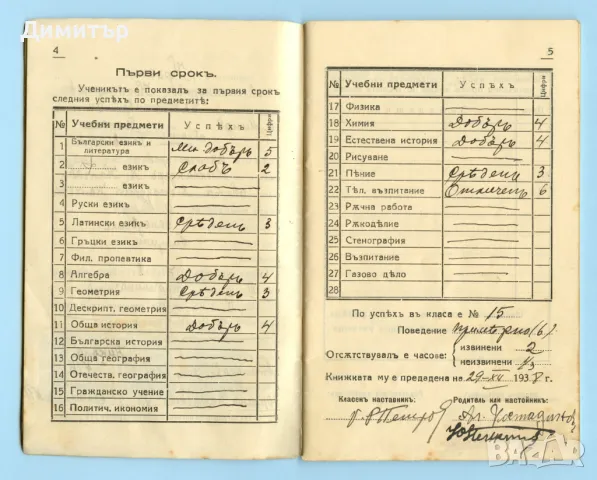 Димитър
4
Първи срокъ.
Ученикътъ е показалъ за първия срокъ
следния успѣхъ по предметитѣ:
№ Учебни предмети Успѣхъ Цифри
1 Български езикъ и литература Мн. добъръ 5
2 езикъ Слабъ 2
3 езикъ
4 Руски езикъ
5 Латински езикъ Срѣденъ 3
6 Гръцки езикъ
7 Фил. пропевтика
8 Алгебра Добъръ 4
9 Геометрия Срѣденъ 3
10 Дескрипт. геометрия
11 Обща история Добъръ 4
12 Българска история
13 Обща география
14 Отечеств. география
15 Гражданско учение
16 Политич. икономия
5
№ Учебни предмети Успѣхъ Цифри
17 Физика
18 Химия Добъръ 4
19 Естествена история Добъръ 4
20 Рисуване
21 Пѣние Срѣденъ 3
22 Тѣл. възпитание Отличенъ 6
23 Рѫчна работа
24 Рѫкодѣлие
25 Стенография
26 Възпитание
27 Газово дѣло
28
По успѣхъ въ класа е № 15
Поведение Примѣрно (6)
Отсѫтствувалъ е часове: извинени 2
неизвинени 1/3
Книжката му е предадена на 29-XII 1938 г.
Класенъ наставникъ: Родитель или настойникъ:
BAZAR